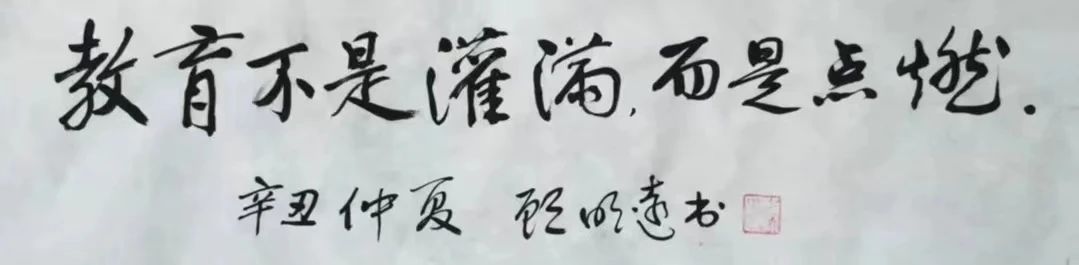 教育不是灌满,而是点燃.
辛丑仲夏 顾明远书